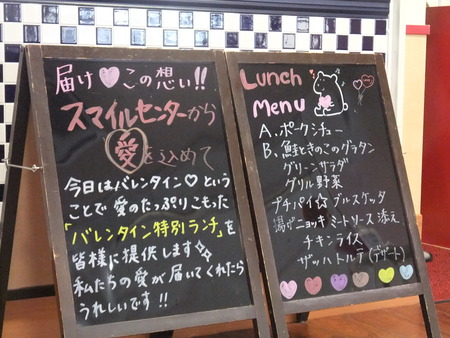 届け♡この想い!!
スマイルセンターから
愛を込めて
今日はバレンタイン♡という
ことで愛のたっぷりこもった
「バレンタイン特別ランチ」を
皆様に提供します✧✧
私たちの愛が届いてくれたら
うれしいです!!
Lunch
Menu
A. ポークシチュー
B. 鮭ときのこのグラタン
グリーンサラダ
グリル野菜
プチパイ☆ブルスケッタ
揚げニョッキ ミートソース添え
チキンライス
ザッハトルテ(デザート)